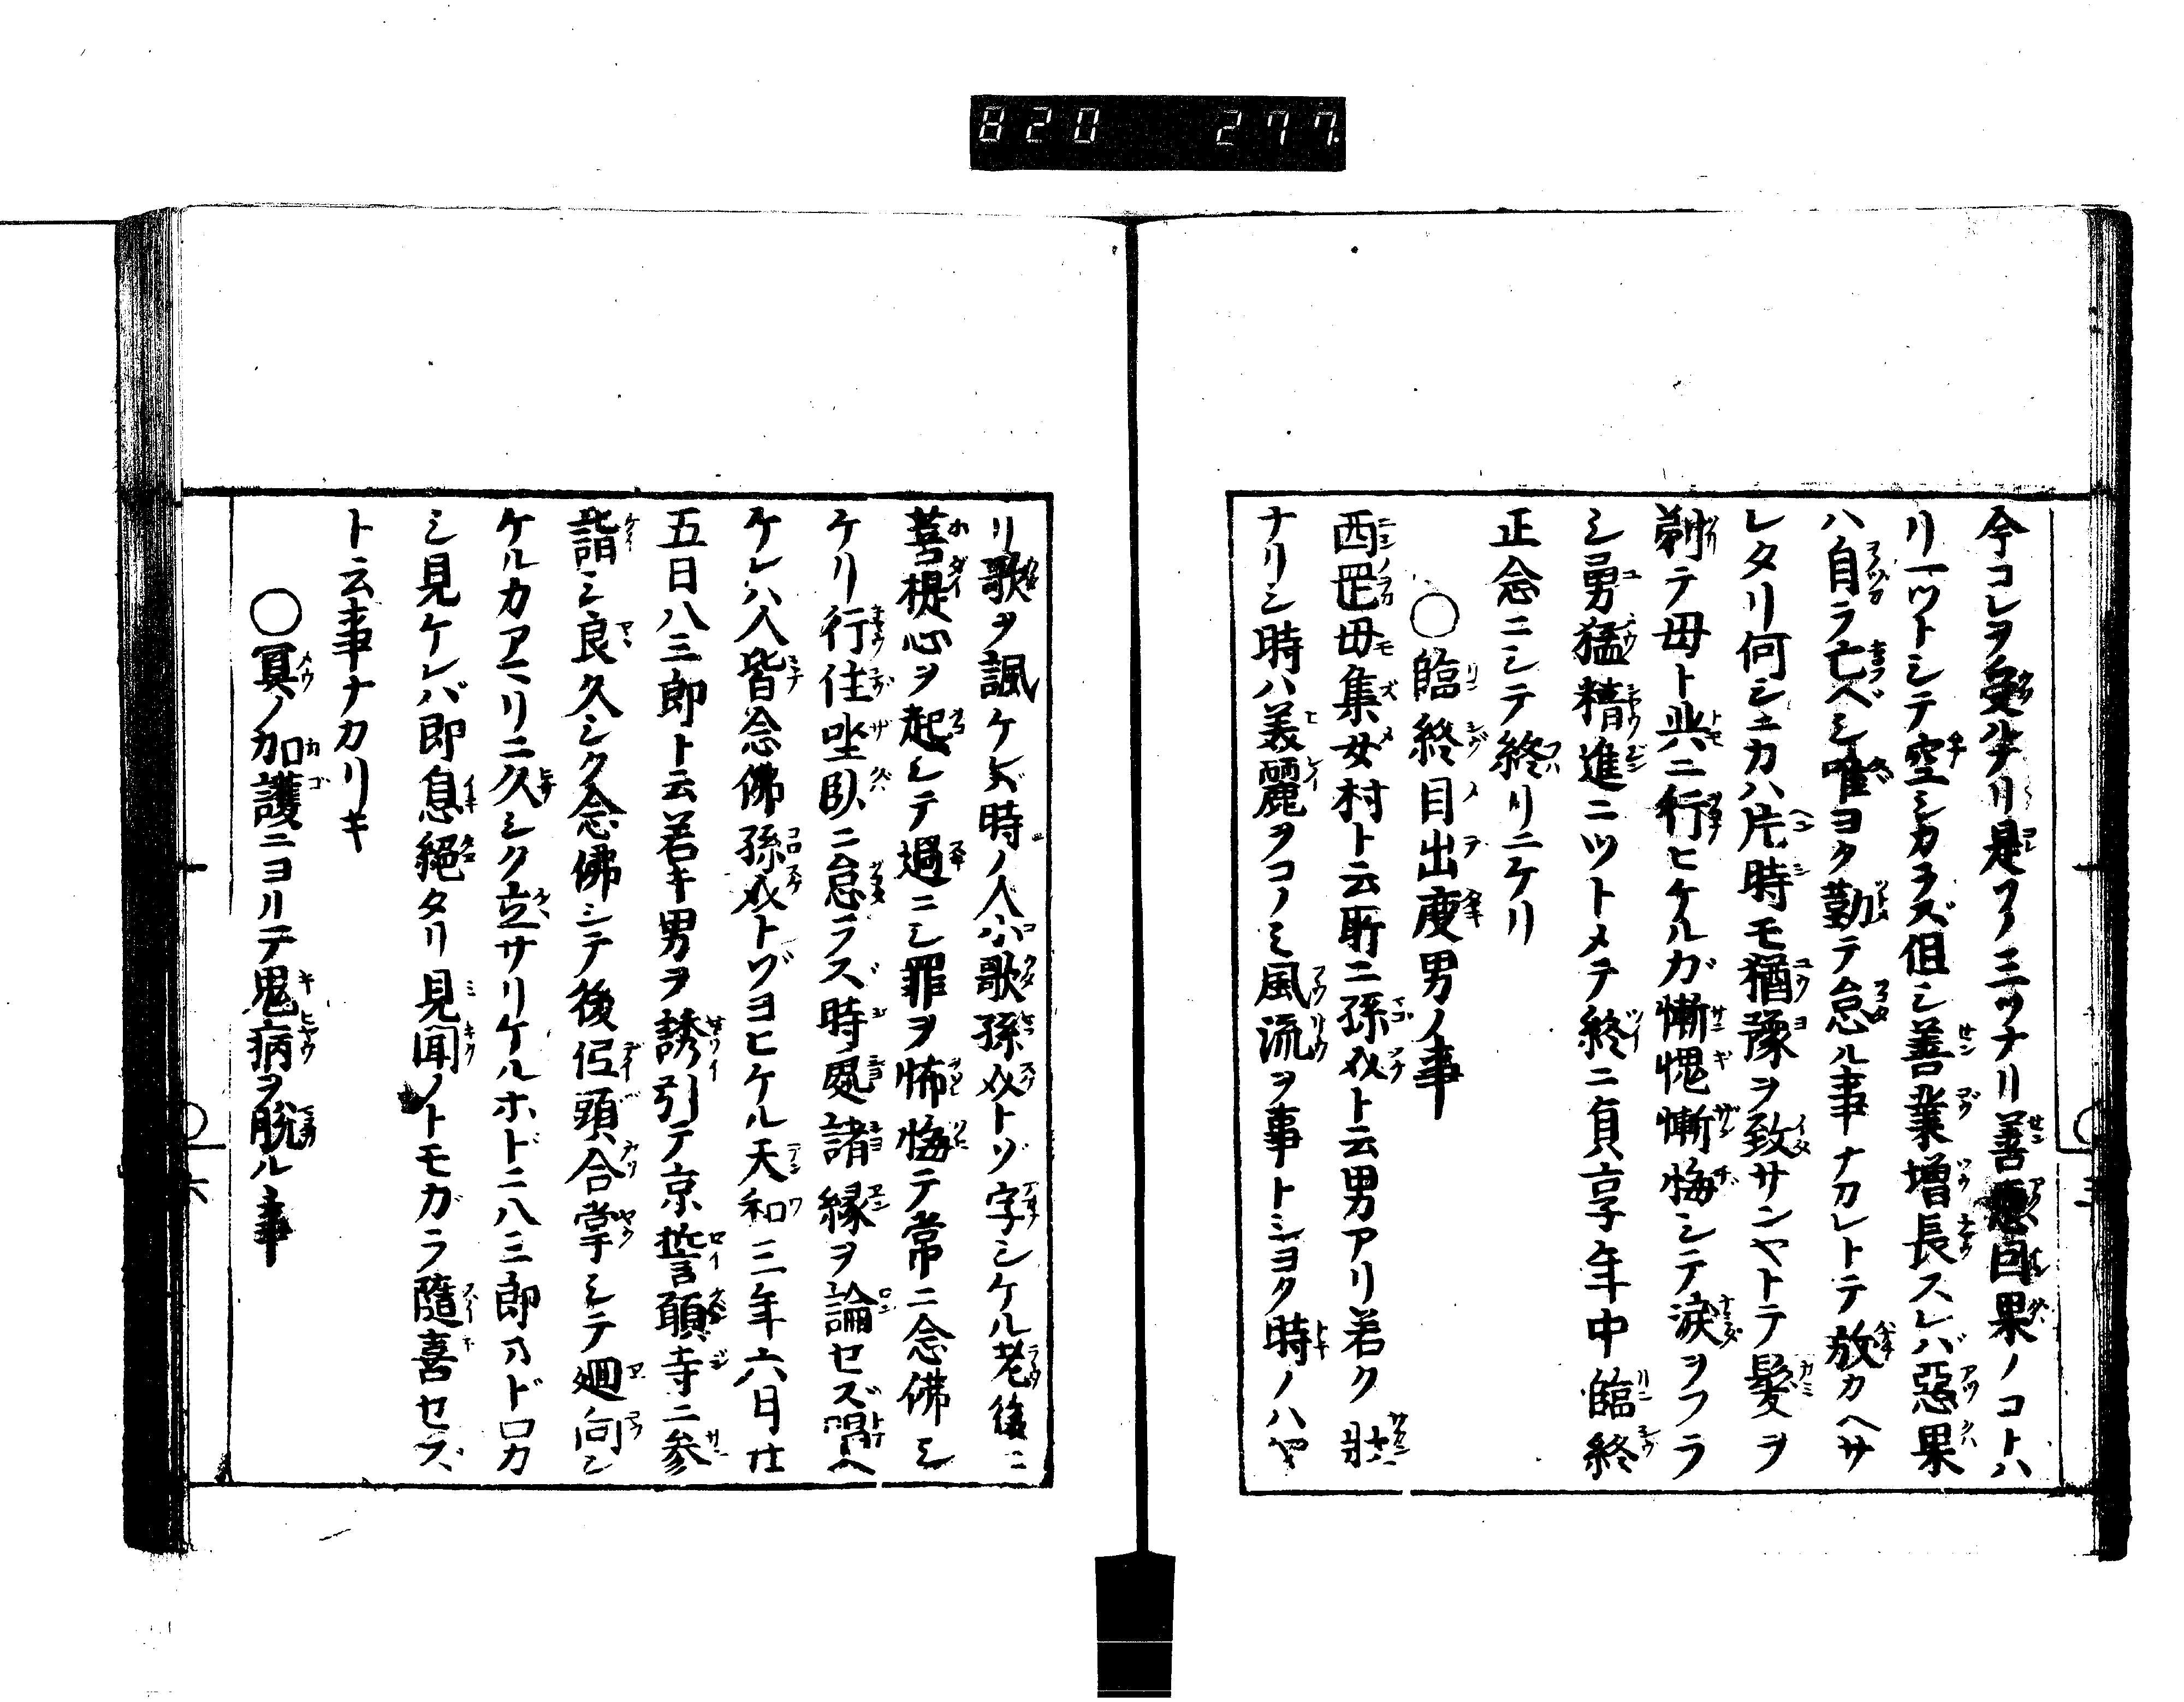 820 277
今コレヲ受ルナリ是フノ三ツナリ善惡因果ノコトハ
リ一ツトシテ空シカラズ但シ善業増長スレバ惡果
ハ自ラ亡ベシ唯ヨク勤テ怠ル事ナカレトテ放カヘサ
レタリ何シニカハ片時モ猶豫ヲ致サンヤトテ髪ヲ
剃テ母ト共ニ行ヒケルガ慚愧懺悔シテ涙ヲフラ
シ勇猛精進ニツトメテ終ニ貞享年中臨終
正念ニシテ終リニケリ
○臨終目出度男ノ事
西岡毋集女村ト云所ニ孫介ト云男アリ若ク壯
ナリシ時ハ美麗ヲコノミ風流ヲ事トシヨク時ノハヤ
リ歌ヲ諷ケレバ時ノ人小歌孫介トゾ字シケル老後ニ
菩提心ヲ起シテ過ニシ罪ヲ怖悔テ常ニ念佛シ
ケリ行住坐臥ニ怠ラズ時處諸縁ヲ論セズ唱ヘ
ケレハ人皆念佛孫介トゾヨヒケル天和三年六月廿
五日八三郎ト云若キ男ヲ誘引テ京誓願寺ニ参
詣シ良久シク念佛シテ後低頭合掌シテ廻向シ
ケルカアマリニ久シク立サリケルホドニ八三郎ヲドロカ
シ見ケレバ即息絶タリ見聞ノトモガラ隨喜セズ
ト云事ナカリキ
○冥ノ加護ニヨリテ鬼病ヲ脱ル事
六